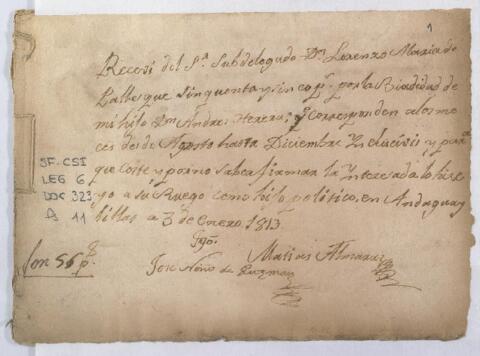 1
Recevi del Sr. Subdelegado Dn. Lorenzo Maria de
que sinquenta y sinco ps. por la Biudidad de
mi hijo Dn. Andres Herera, qe. corresponden a los me
ces desde Agosto hasta Diciembre Ynclucivi y para
que coste y por no saber firmar la Ynteresada lo hise
yo a su Ruego como hijo politico, en Andaguay
billas a 3 de Enero 1813
SF. CSI
LEG 6
DOC 323
A 11
Son 55 ps.
Tgo.
Jose Niño de Guzman
Matias Almaraz